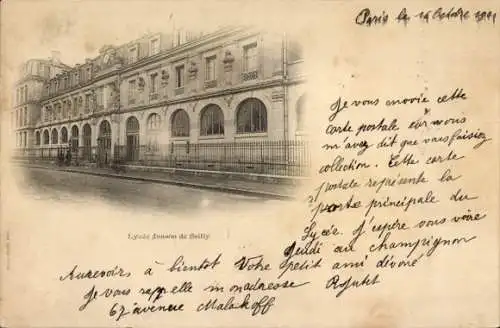 Paris le 16 Octobre 1901
Je vous envoie cette
carte postale car vous
m'avez dit que vous faisiez
collection. Cette carte
postale représente la
porte principale du
Lycée. J'espère vous voir
Jeudi au champignon
Lycée Janson de Sailly
Aurevoir à bientôt Votre petit ami dévoré
Je vous rappelle mon adresse
67 avenue Malakoff